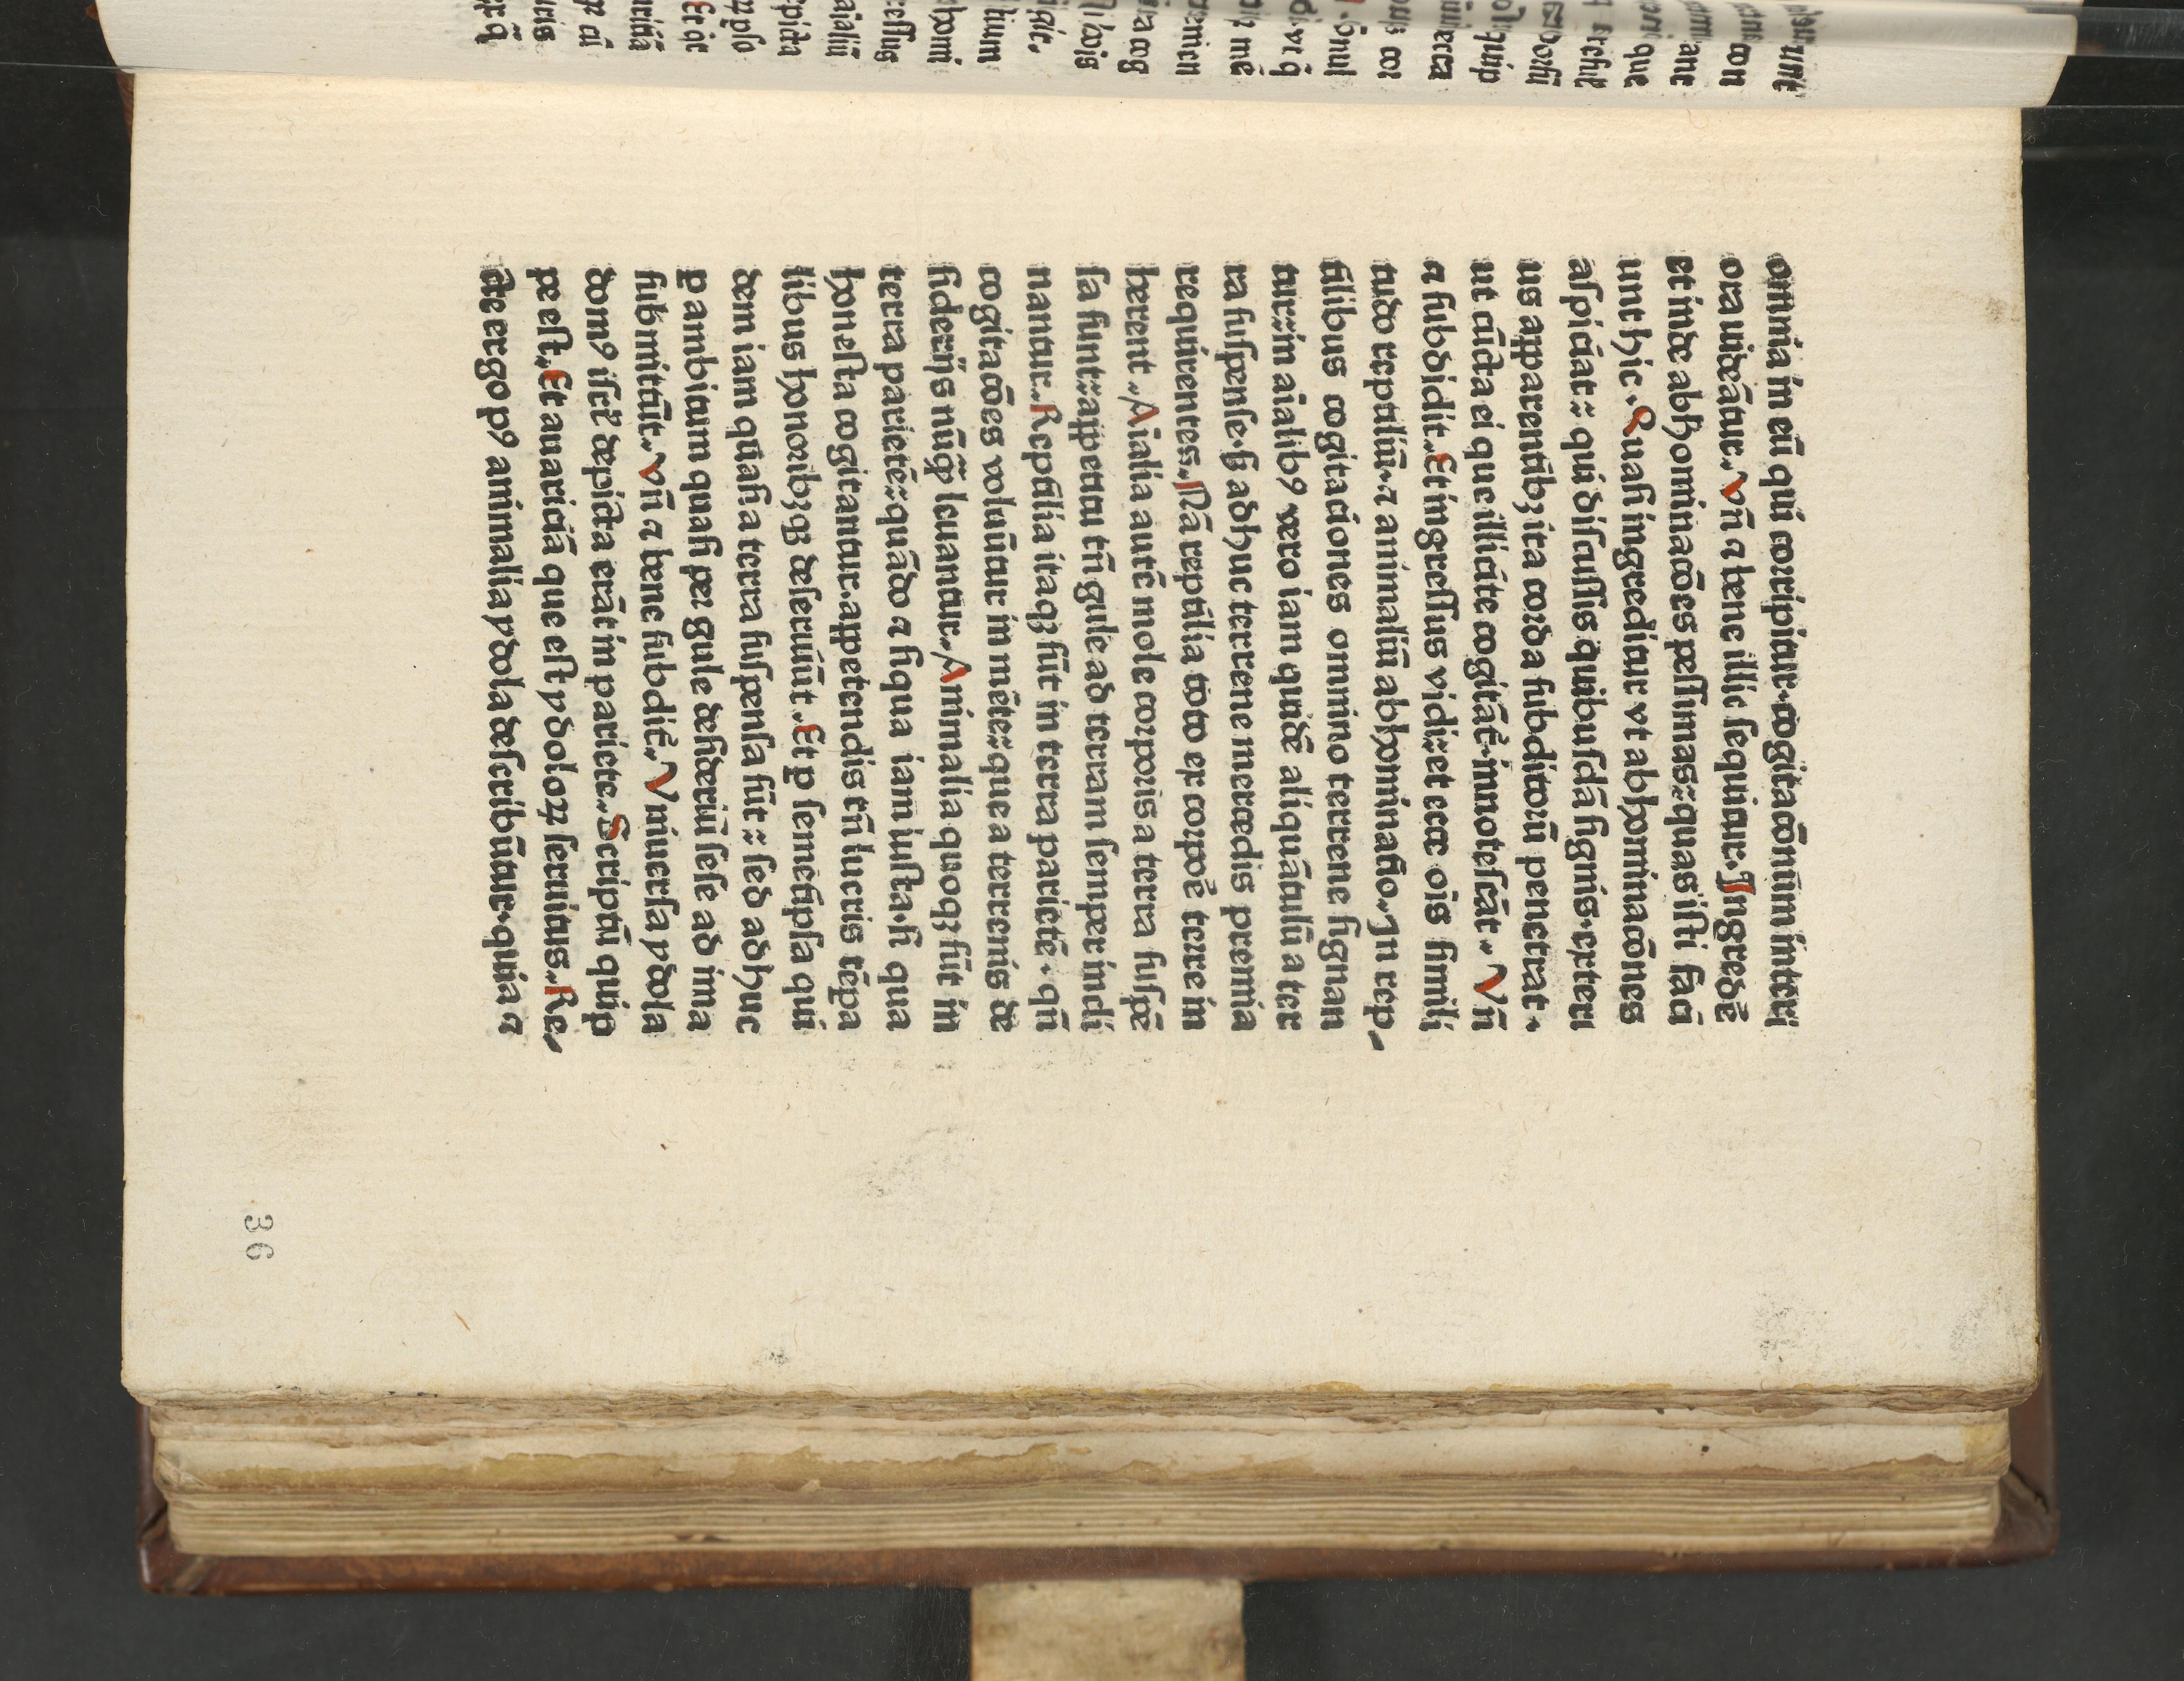 omnia in eū qui corripitur cogitacōnum interi
ora videātur. Vn̄ ⁊ bene illic sequitur. Ingredē
et vide abhominacōes pessimas: quas isti faciū
unt hic. Quasi ingreditur vt abhominacōnes
aspiciat: qui discussis quibusdā signis exteri
us apparentibȝ ita corda subditorū penetrat.
ut cūcta ei que illicite cogitāt̄ innotescāt. Vn̄
⁊ subdidit. Et ingressus vidi: et ecce oīs simili
tudo reptiliū ⁊ animaliū abhominatio. In rep
tilibus cogitaciones omnino terrene signan
tur: in aīalibꝯ vero iam quidē aliquātulū a ter
ra suspense. sȝ adhuc terrene mercedis premia
requirentes. Nā reptilia toto ex corpē terre in
herent. Aīalia autē mole corporis a terra suspē
sa sunt: appetitu tn̄ gule ad terram semper incli
nantur. Reptilia itaqȝ sūt in terra parietē. qn̄
cogitacōes voluūtur in mēte: que a terrenis de
siderijs nūq̄ leuantur. Animalia quoqȝ sūt in
terra parietē: quādo ⁊ si qua iam iusta. si qua
honesta cogitantur. appetendis tn̄ lucris tēpa
libus honoribȝqȝ deseruiūt. Et ꝑ semetipsa qui
dem iam quasi a terra suspensa sūt: sed adhuc
ꝑ ambitum quasi per gule desideriū sese ad ima
submittūt. Vn̄ ⁊ bene subdit̄. Vniuersa ydola
domꝯ isrl̄ depicta erāt in pariete. Scriptū quip
pe est. Et auariciā que est ydoloꝝ seruitus. Re
cte ergo pꝯ animalia ydola describūtur. quia ⁊
36